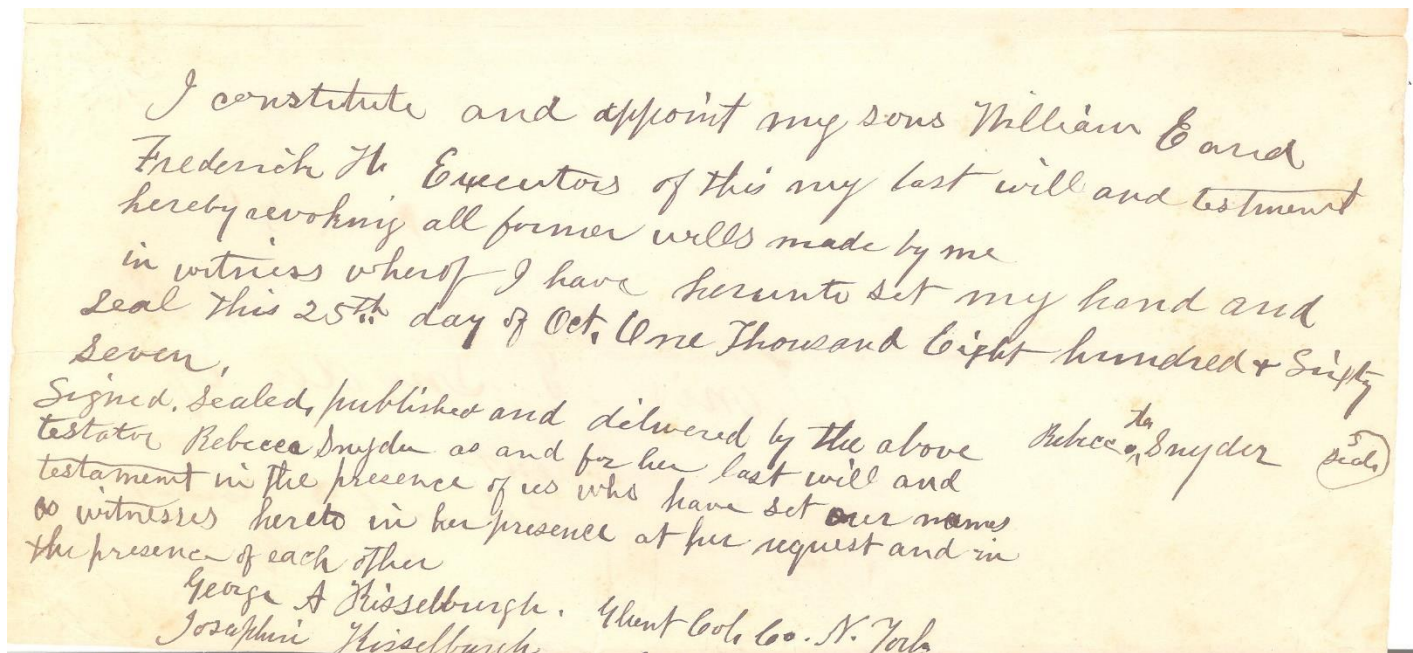 I constitute and appoint my sons William E and
Frederick H Executors of this my last will and testment
hereby revoking all former wills made by me
in witness wherof I have herunto set my hand and
seal this 25th day of Oct. One Thousand Eight hundred & Sixty
seven,
Signed, Sealed, published and delivered by the above
testator Rebecca Snyder as and for her last will and
testament in the presence of us who have set our names
as witnesses hereto in her presence at her request and in
the presence of each other
Rebecca Snyder
Seal
George A Kisselburgh. Ghent Col. Co. N. York
Josephine Kisselburgh